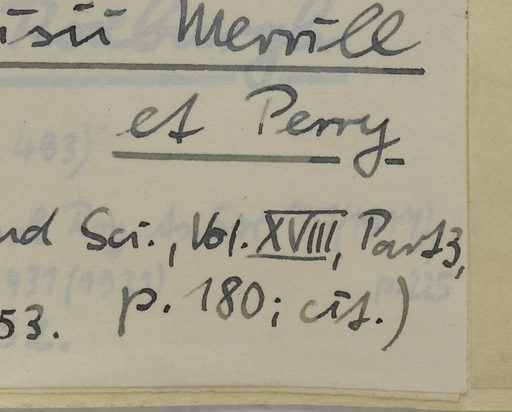 isii Merrill
et Perry
nd Sci., Vol. XVIII, Part 3,
53. p. 180; cit.)